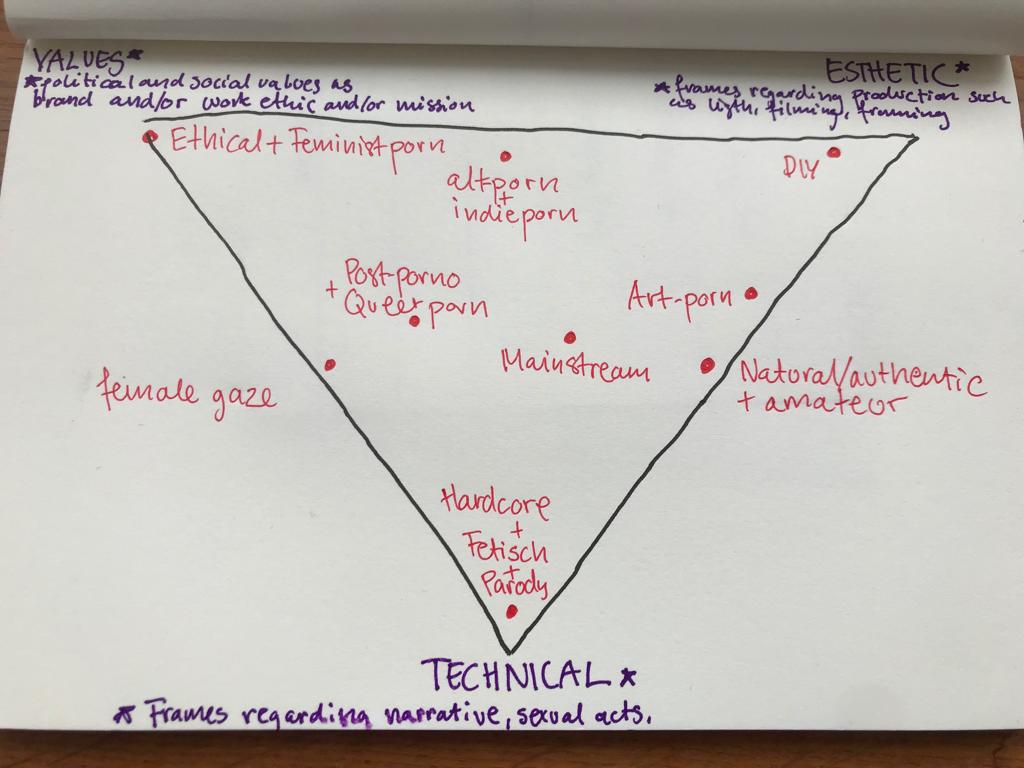 VALUES*
*political and social values as
brand and/or work ethic and/or mission
ESTHETIC*
*frames regarding production such
as ligth, filming, framing
Ethical + Feminist porn
altporn
+
indieporn
DIY
Post-porno
+ Queer porn
Art-porn
Mainstream
female gaze
Natural/authentic
+ amateur
Hardcore
+
Fetisch
+
Parody
TECHNICAL*
* Frames regarding narrative, sexual acts.